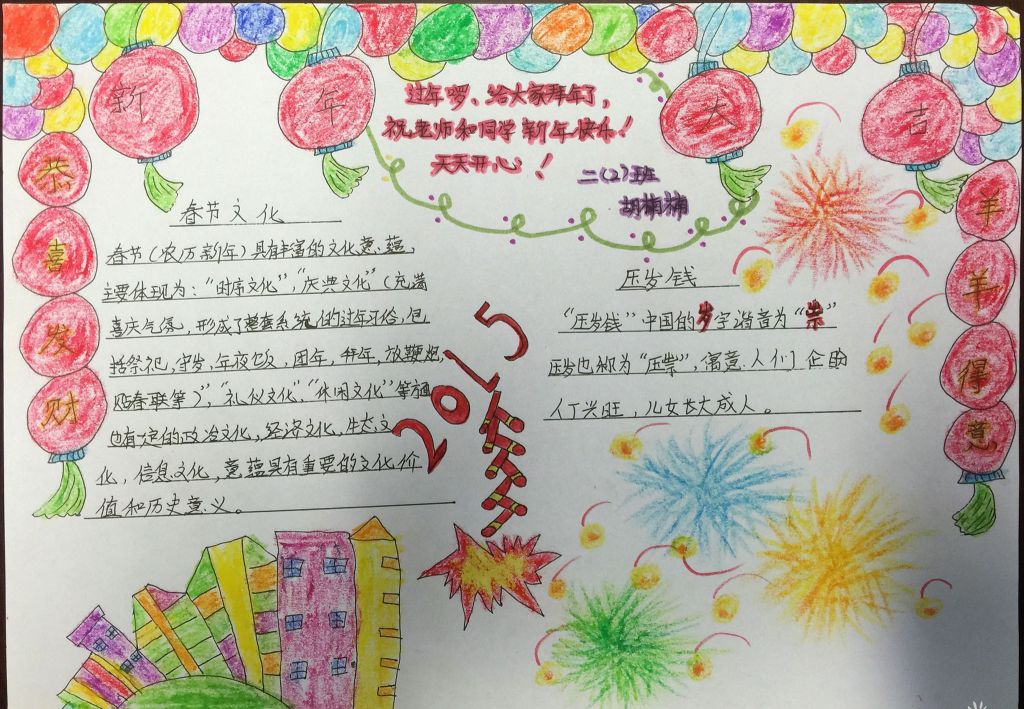 新年大吉
恭喜发财
过年啰、给大家拜年了，
祝老师和同学新年快乐！
天天开心！
二（2）班
胡楠楠
春节文化
春节（农历新年）具有丰富的文化意蕴，
主要体现为：“时序文化”，“庆典文化”（充满
喜庆气氛，形成了整套系统的过年习俗，包
括祭祀，守岁，年夜饭，团年，拜年，放鞭炮，
贴春联等），“礼仪文化”，“休闲文化”等方面
也有一定的政治文化，经济文化，生态文
化，信息文化，意蕴具有重要的文化价
值和历史意义。
2015
压岁钱
“压岁钱”中国的岁字谐音为“祟”
压岁也称为“压祟”，寓意人们企盼
人丁兴旺，儿女长大成人。
羊羊得意